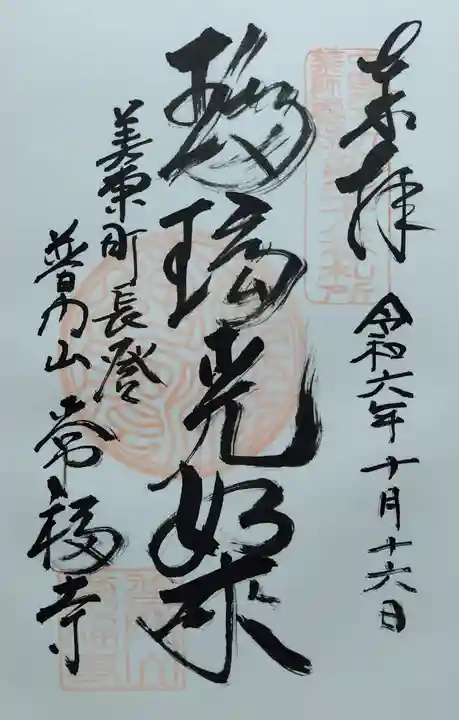 奉拝
令和六年十月十六日
瑠璃光如来
美東町長登
普門山
常福寺